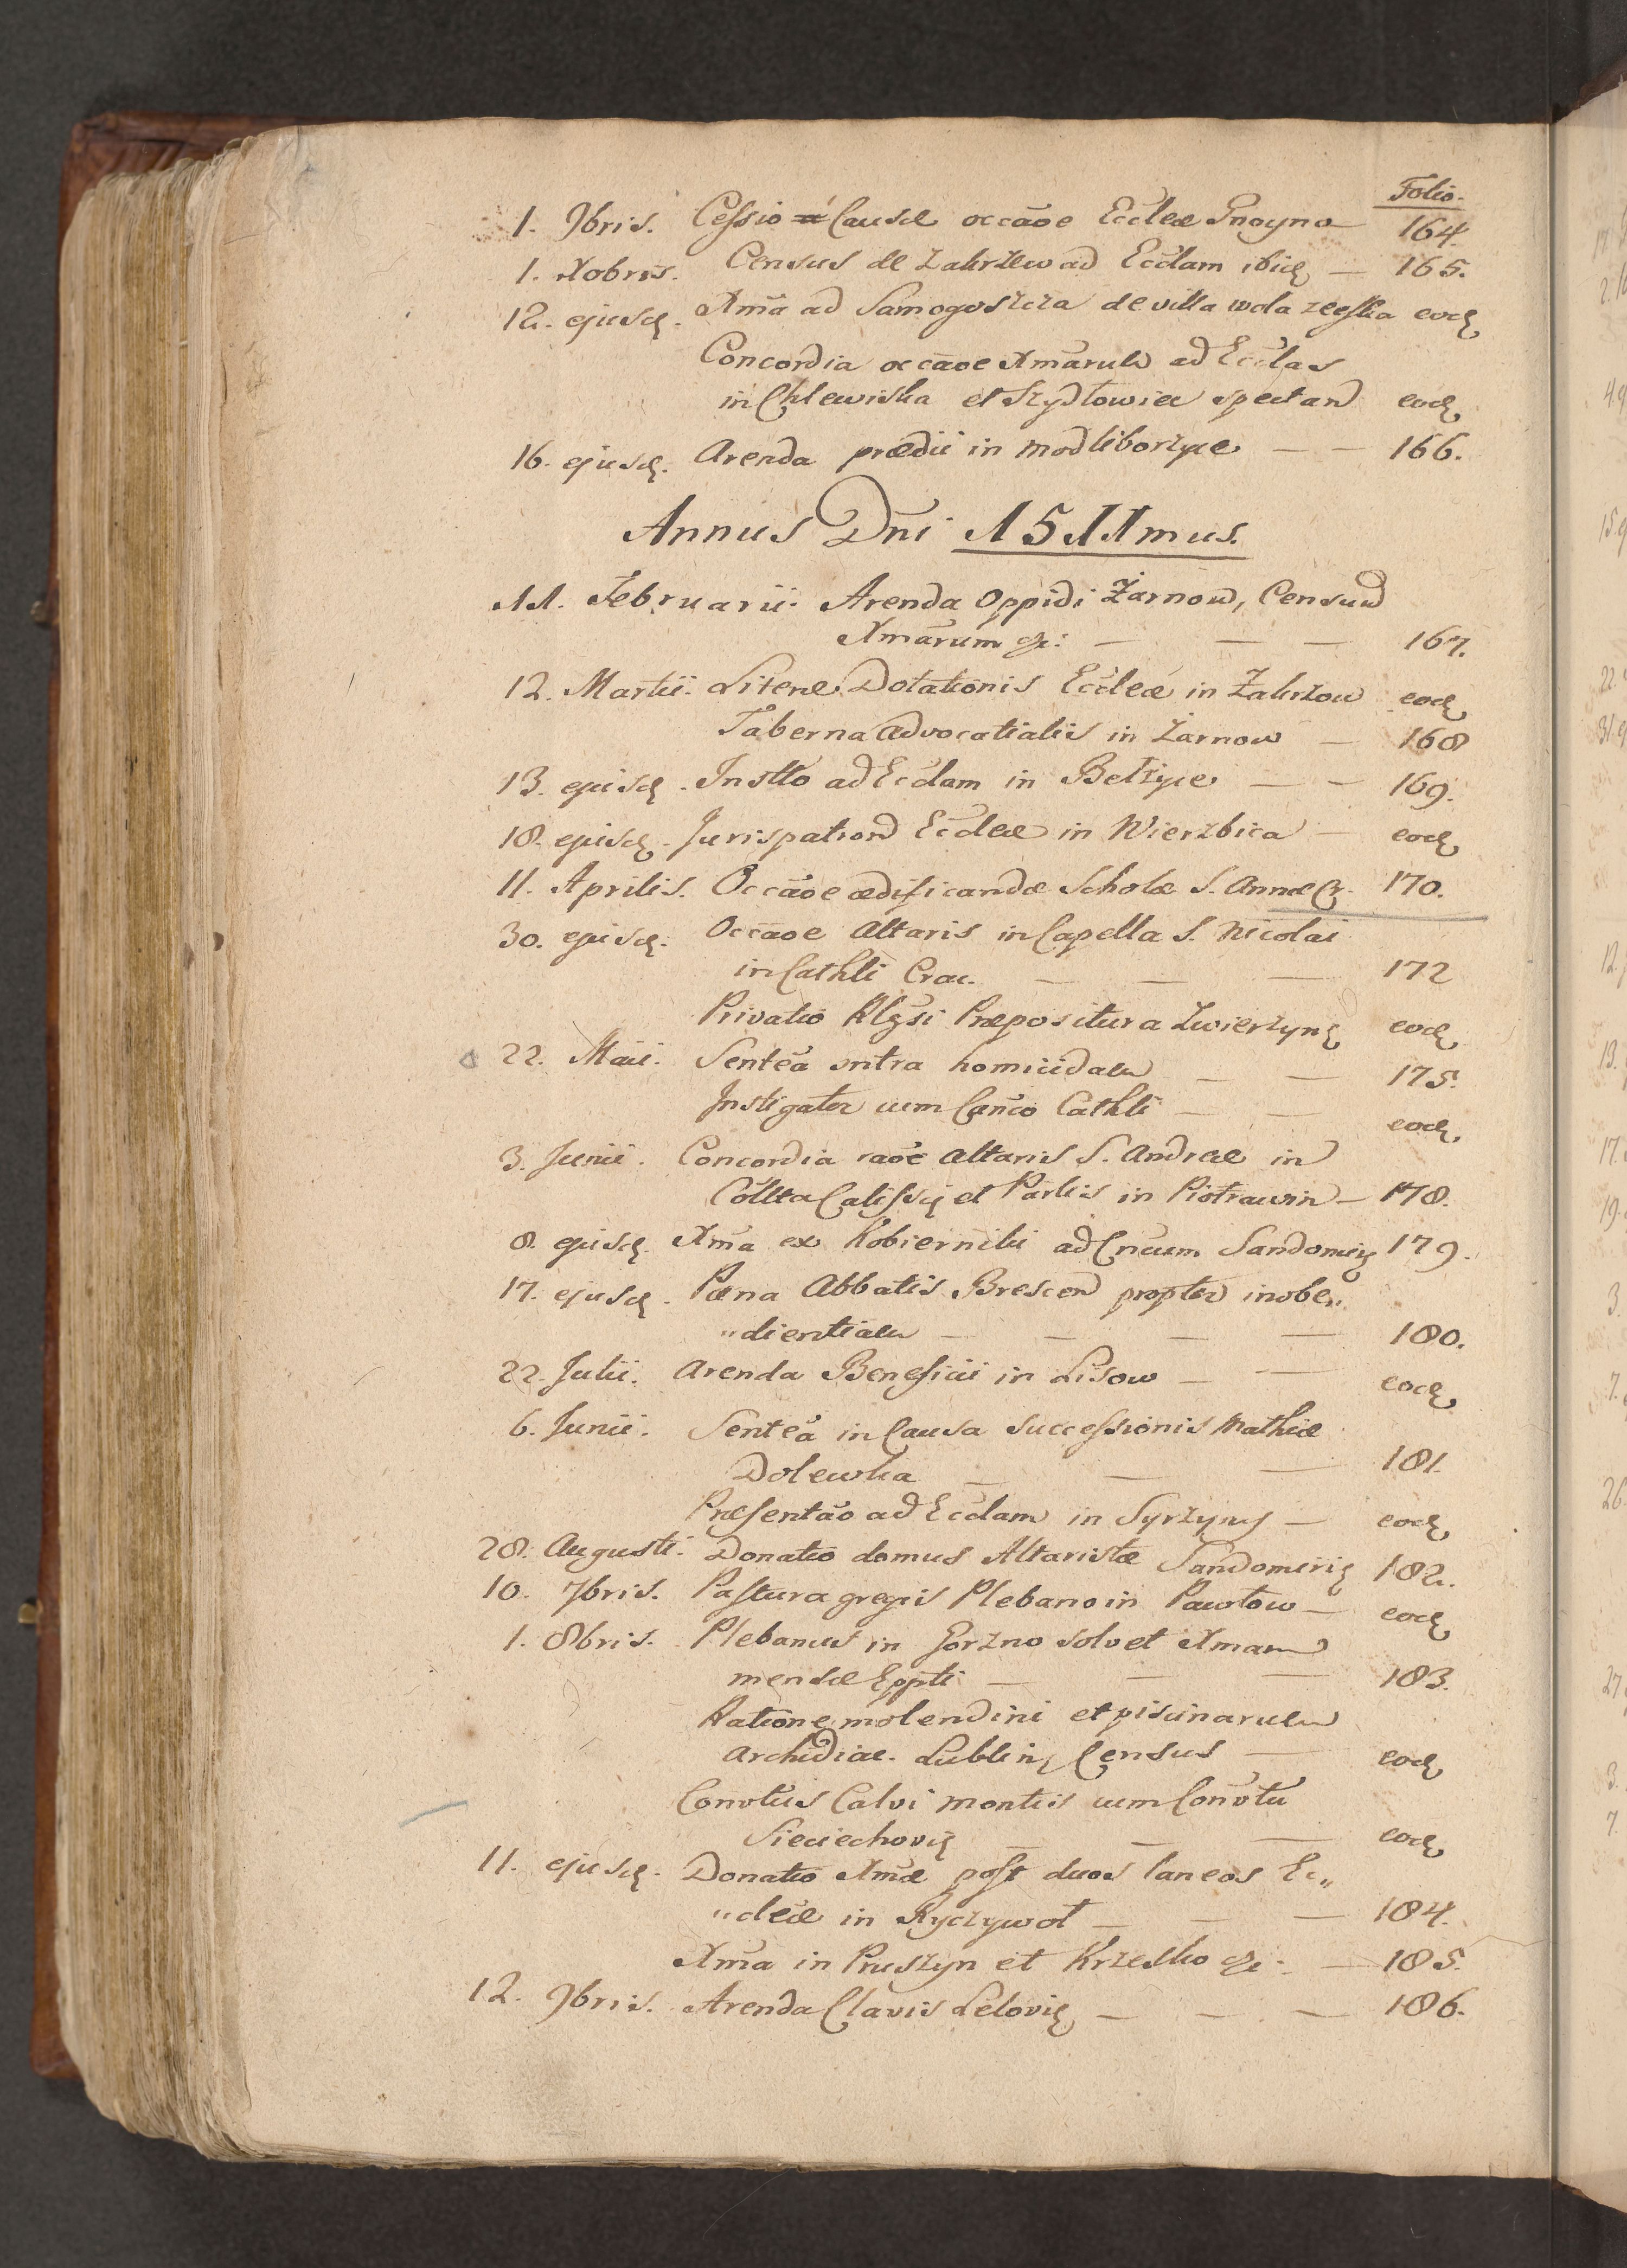 Folio.
1. 9bris. Cessio a Causæ occãoe Eccleæ Gnoyno — 164.
1. Xobris. Census de Zakrzew ad Ecclam ibid. — 165.
12. ejusd. Xma ad Samogoszcza de villa wola rzeska eod.
Concordia occãoe Xmarum ad Ecclas
in Chlewiska et Szydłowiec spectan eod.
16. ejusd. Arenda prædii in Modliborzyce — — 166.
Annus Dni 1511mus.
11. Februarii. Arenda Oppidi Żarnow, Censuu
Xmarum &c: — — — 167.
12. Martii. Literæ Dotationis Eccleæ in Zakrzow eod.
Taberna advocatialis in Zarnow — 168
13. ejusd. Instto ad Ecclam in Bełżyce — — 169.
18. ejusd. Jurispatron Eccleæ in Wierzbica — eod.
11. Aprilis. Occãoe ædificandæ Scholæ S. Annæ Cr. 170.
30. ejusd. Occãoe Altaris in Capella S. Nicolai
in Cathli Crac. — — — 172
Privatio Rlgsi Præpositura Zwierzyn. eod.
22. Maii. Sentea cntra homicidam — — 175.
Instigator cum Canco Cathli — — eod.
3. Junii. Concordia raoe Altaris S. Andreæ in
Collta Calissi. et Parlis in Piotrawin — 178.
8. ejusd. Xma ex Kobierniki ad Cncum Sandomir. 179.
17. ejusd. Pæna Abbatis Brescen propter inobe„
„dientiam — — — — 180.
22. Julii. Arenda Beneficii in Lisow — — eod.
6. Junii. Sentea in Causa successionis Mathiæ
Dolewka — — — 181.
Præsentao ad Ecclam in Syrzyny — eod.
28. Augusti. Donatio domus Altaristæ Sandomiri. 182.
10. 7bris. Pastura gregis Plebano in Pawłow — eod.
1. 8bris. Plebanus in Gorzno solvet Xmam
mensæ Eppli — — — 183.
Ratione molendini et piscinarum
Archidiac. Lublin. Census — eod.
Convtus Calvi montis cum Convtu
Sieciechovi. — — — eod.
11. ejusd. Donatio Xmæ post duos laneos Ec„
„cleæ in Ryczywoł — — — 184.
Xma in Pruszyn et Krzesko &c. — 185.
12. 9bris. Arenda Clavis Lelovi. — — — 186.